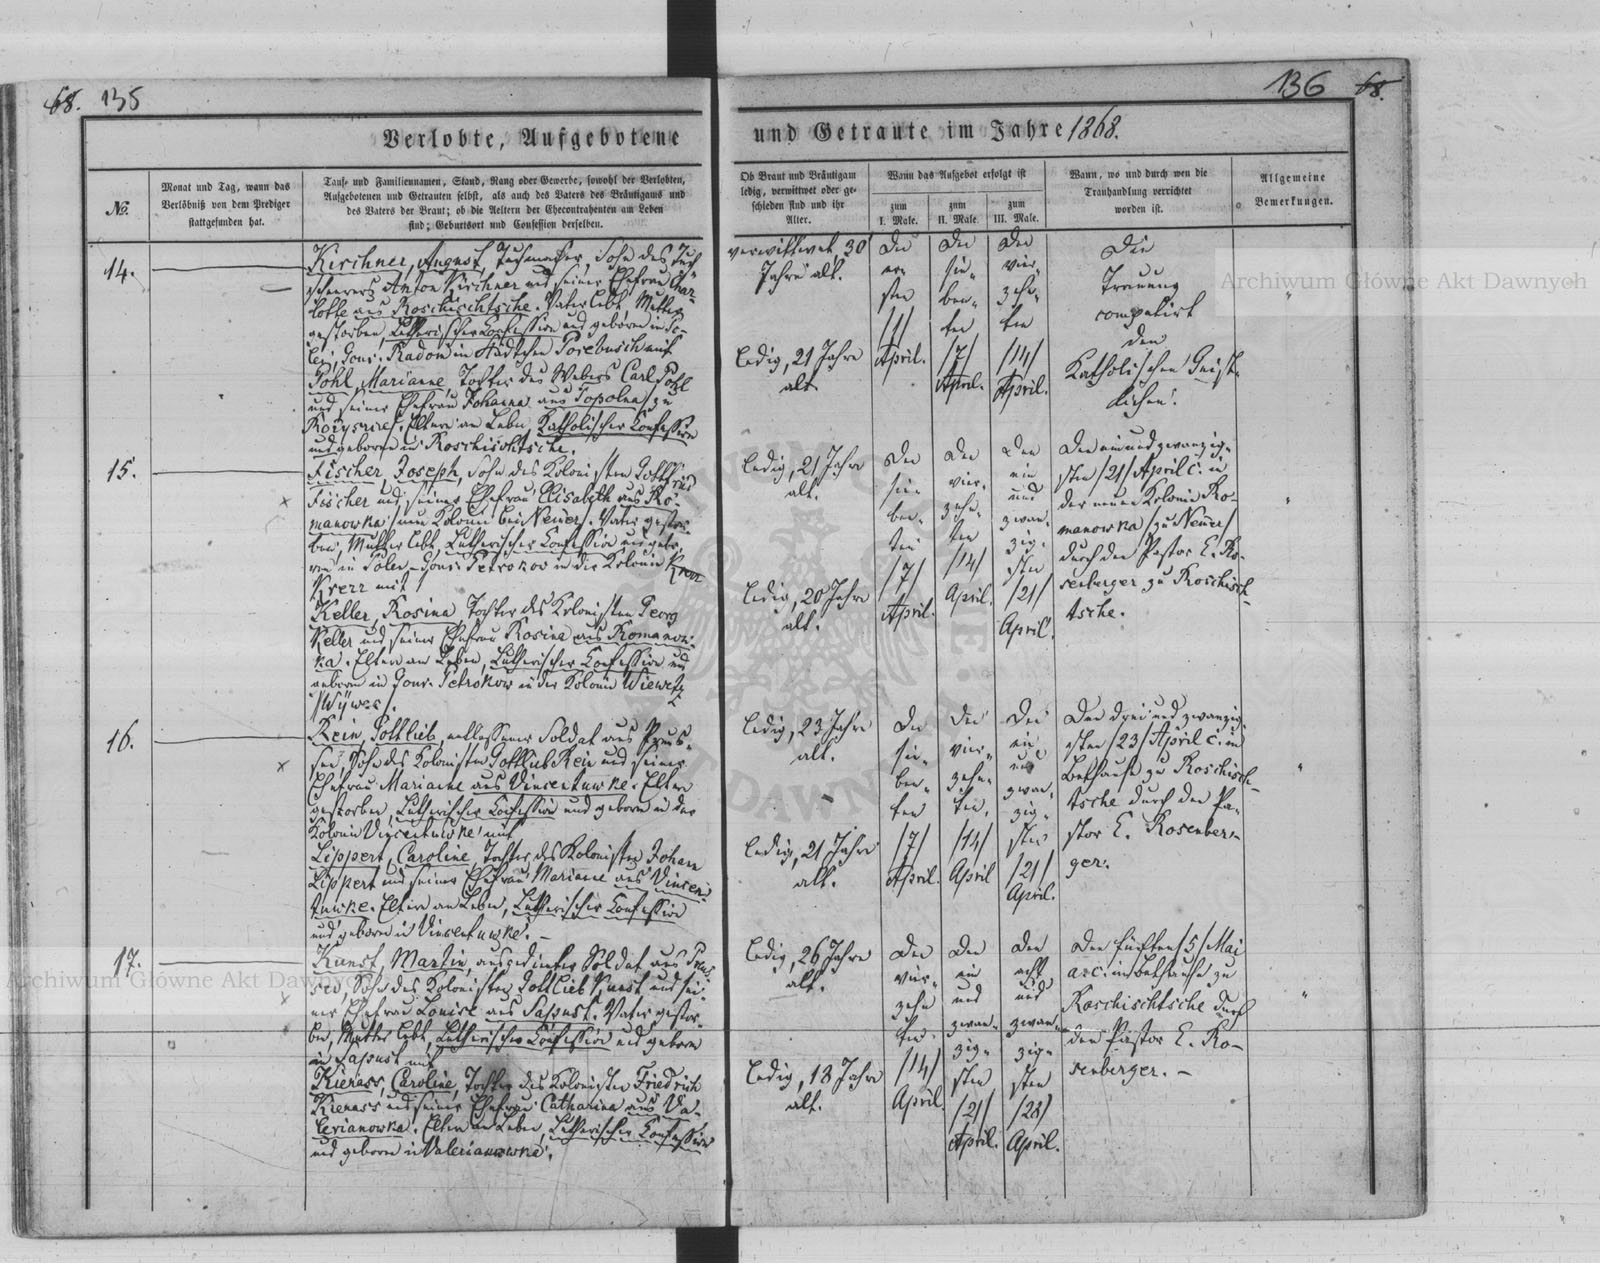 68. 135
136 68.
Verlobte, Aufgebotene
und Getraute im Jahre 1868.
No.
Monat und Tag, wann das
Verlöbniß von dem Prediger
stattgefunden hat.
Tauf- und Familiennamen, Stand, Rang oder Gewerbe, sowohl der Verlobten,
Aufgebotenen und Getrauten selbst, als auch des Vaters des Bräutigams und
des Vaters der Braut; ob die Aeltern der Ehecontrahenten am Leben
sind; Geburtsort und Confession derselben.
Ob Braut und Bräutigam
ledig, verwittwet oder ge-
schieden sind und ihr
Alter.
Wann das Aufgebot erfolgt ist
zum
I. Male.
zum
II. Male.
zum
III. Male.
Wann, wo und durch wen die
Trauhandlung verrichtet
worden ist.
Allgemeine
Bemerkungen.
14.
Kirchner, August, Tuchmacher, Sohn des Tuch-
scheerers Anton Kirchner und seiner Ehefrau Char-
lotte aus Roschischtsche. Vater lebt, Mutter
gestorben, Lutherischer Confession und geboren in Po-
len, Gouv. Radom in Städtchen
Pohl, Marianne, Tochter des Webers Carl Pohl
und seiner Ehefrau Johanna aus Topolna zu
Eltern am Leben, Katholischer Confession
und geboren in Roschischtsche.
verwittwet, 30
Jahre alt.
ledig, 21 Jahre
alt.
Den
er-
sten
/1/
April.
Den
sie-
ben-
ten
/7/
April.
Den
vier-
zehn-
ten
/14/
April.
Die
Trauung
competirt
dem
Katholischen Geist-
lichen.
"
15.
Fischer, Joseph, Sohn des Kolonisten Gottfried
Fischer und seiner Ehefrau Elisabeth aus Ro-
manowka /neue Kolonie bei Neuer/. Vater gestor-
ben, Mutter lebt, Lutherischer Confession und gebo-
ren in Polen-Gouv. Petrokow in der Kolonie
mit
Keller, Rosina, Tochter des Kolonisten Georg
Keller und seiner Ehefrau Rosina aus Romanow-
ka. Eltern am Leben, Lutherischer Confession und
geboren in Gouv. Petrokow in der Kolonie
ledig, 21 Jahre
alt.
ledig, 20 Jahre
alt.
Den
sie-
ben-
ten
/7/
April.
Den
vier-
zehn-
ten
/14/
April.
Den
ein
und
zwan-
zig-
sten
/21/
April.
Den ein und zwanzig-
sten /21/ April c. in
der neuen Kolonie Ro-
manowka /zu Neuer/
durch den Pastor E. Ro-
senberger zu Roschisch-
tsche.
"
16.
Rein, Gottlieb, entlassener Soldat aus Preus-
sen, Sohn des Kolonisten Gottlieb Rein und seiner
Ehefrau Marianne aus Vincentuwke. Eltern
gestorben, Lutherischer Confession und geboren in der
Kolonie Vincentuwke mit
Lippert, Caroline, Tochter des Kolonisten Johann
Lippert und seiner Ehefrau Marianne aus Vincen-
tuwke. Eltern am Leben, Lutherischer Confession
und geboren in Vincentuwke.
ledig, 23 Jahre
alt.
ledig, 21 Jahre
alt.
Den
sie-
ben-
ten
/7/
April.
Den
vier-
zehn-
ten
/14/
April
Den
ein
und
zwan-
zig-
sten
/21/
April.
Den drei und zwanzig-
sten /23/ April c. im
Bethause zu Roschisch-
tsche durch den Pa-
stor E. Rosenber-
ger.
"
17.
Kunst, Martin, ausgedienter Soldat aus Preus-
sen, Sohn des Kolonisten Gottlieb Kunst und sei-
ner Ehefrau Louise aus Sapust. Vater gestor-
ben, Mutter lebt, Lutherischer Confession und geboren
in Sapust mit
Kienass, Caroline, Tochter des Kolonisten Friedrich
Kienass und seiner Ehefrau Catharina aus Va-
lerianowka. Eltern am Leben, Lutherischer Confession
und geboren in Valerianowka.
ledig, 26 Jahre
alt.
ledig, 18 Jahre
alt.
Den
vier-
zehn
ten
/14/
April.
Den
ein
und
zwan-
zig-
sten
/21/
April.
Den
acht
und
zwan-
zig-
sten
/28/
April.
Den fünften /5/ Mai
a.c. im Bethause zu
Roschischtsche durch
den Pastor E. Ro-
senberger. -
"
Archiwum Główne Akt Dawnych
Archiwum Główne Akt Dawnych